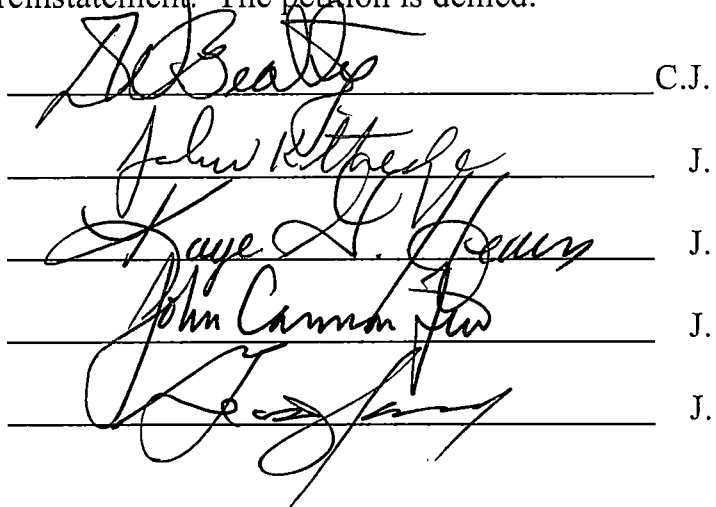 reinstatement. The petition is denied.
Beatty C.J.
John Kittredge J.
Kaye G. Hearn J.
John Cannon Few J.
J.